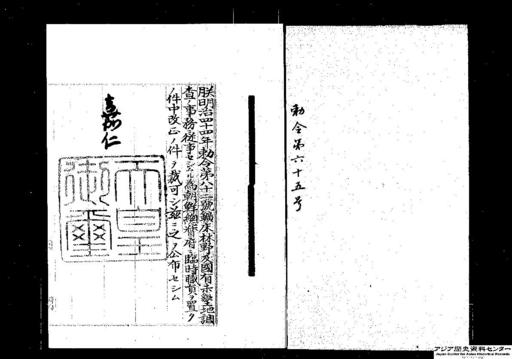 勅令第六十五号
朕明治四十四年勅令第八十二號驛屯林野及國有未墾地調
査ノ事務ニ從事セシムル為朝鮮總督府ニ臨時職員ヲ置ク
ノ件中改正ノ件ヲ裁可シ茲ニ之ヲ公布セシム
嘉仁
天皇御璽
アジア歴史資料センター
Japan Center for Asian Historical Records